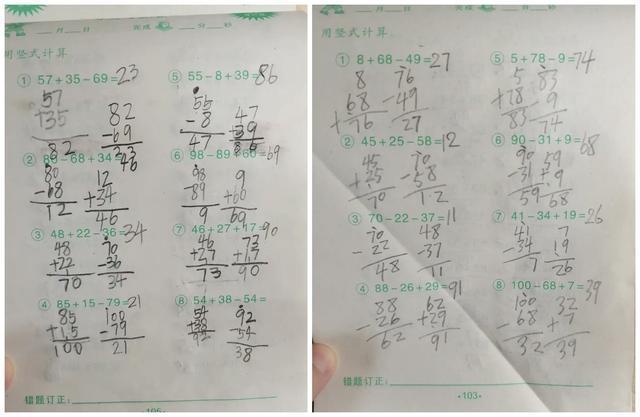 月 日 完成 分 秒
用竖式计算
① 57+35-69=23
57
+35
82
82
-69
23
② 80-68+34=46
80
-68
12
12
+34
46
③ 48+22-36=34
48
+22
70
70
-36
34
④ 85+15-79=21
85
+15
100
100
-79
21
⑤ 55-8+39=86
55
-8
47
47
+39
86
⑥ 98-89+60=69
98
-89
9
9
+60
69
⑦ 46+27+17=90
46
+27
73
73
+17
90
⑧ 54+38-54=
54
+38
92
92
-54
38
错题订正:
月 日 完成 分 秒
用竖式计算
① 8+68-49=27
8
+68
76
76
-49
27
② 45+25-58=12
45
+25
70
70
-58
12
③ 70-22-37=11
70
-22
48
48
-37
11
④ 88-26+29=91
88
-26
62
62
+29
91
⑤ 5+78-9=74
5
+78
83
83
-9
74
⑥ 90-31+9=68
90
-31
59
59
+9
68
⑦ 41-34+19=26
41
-34
7
7
19
26
⑧ 100-68+7=39
100
-68
32
32
+7
39
错题订正:
·103·